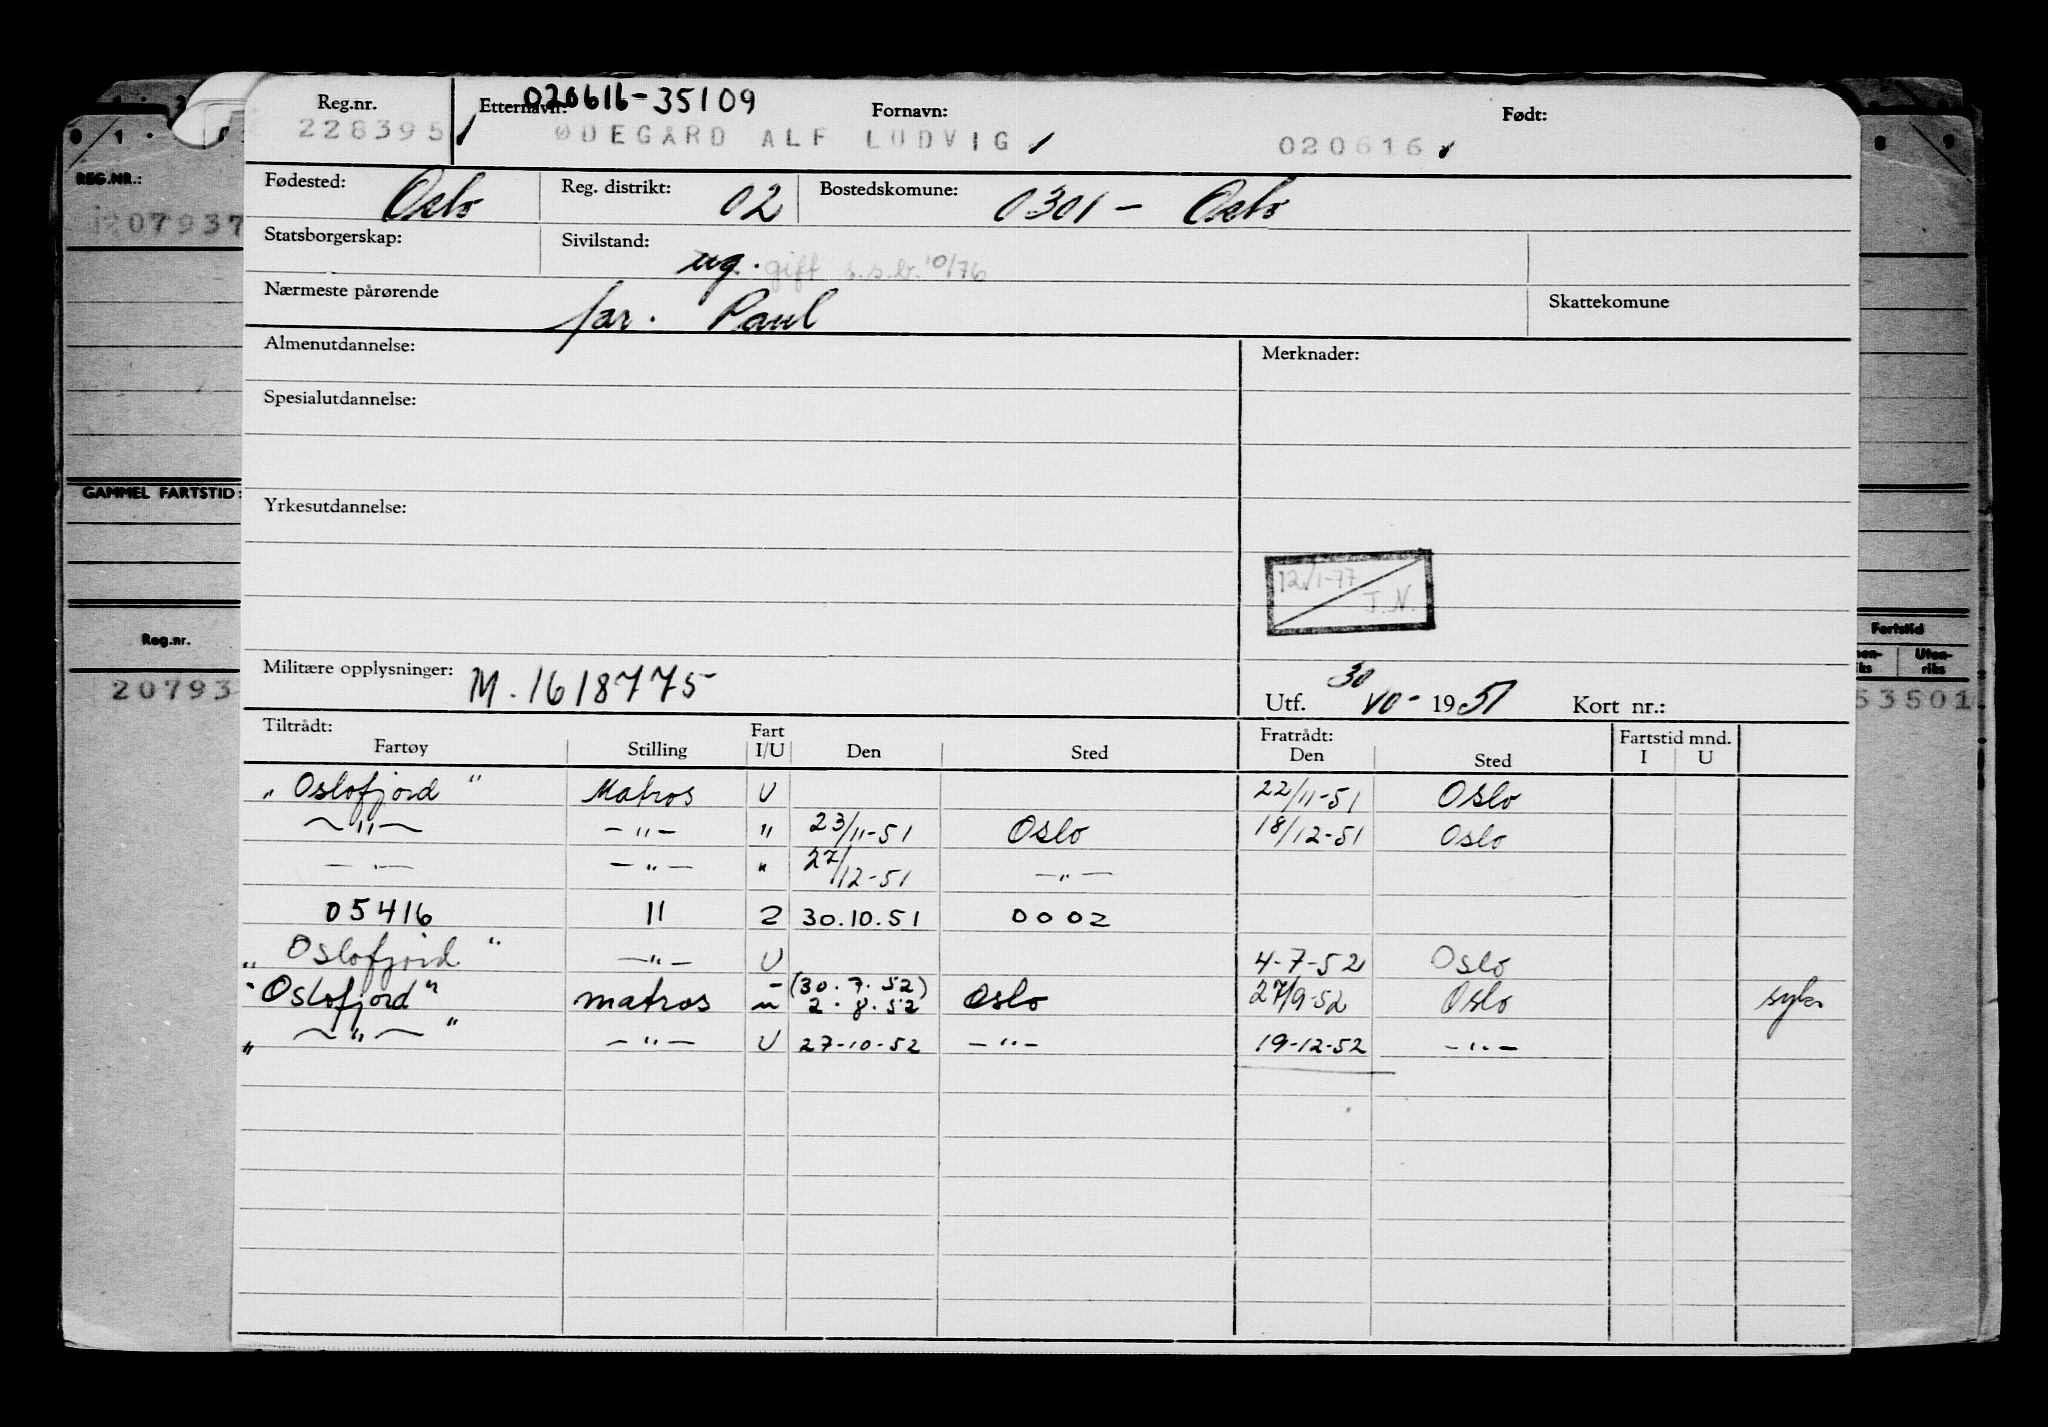 Reg.nr. Etternavn: 020616-35109 Fornavn: Født:
228395 ØDEGÅRD ALF LUDVIG 020616
Fødested: Oslo Reg. distrikt: 02 Bostedskomune: 0301 - Oslo
Statsborgerskap: Sivilstand: ug. gift s.s.b. 10/76
Nærmeste pårørende far. Paul Skattekomune
Almenutdannelse: Merknader:
Spesialutdannelse:
Yrkesutdannelse:
12/1-77
J.N.
Militære opplysninger: M. 1618775 Utf. 30 VII - 1951 Kort nr.:
Tiltrådt: Fratrådt: Fartstid mnd.
Fartøy Stilling Fart I/U Den Sted Den Sted I U
„ Oslofjord " Matros U 22/11-51 Oslo
— " — — " — " 23/11-51 Oslo 18/12-51 Oslo
— " — — " — " 27/12-51 — " —
05416 11 2 30.10.51 0002
„ Oslofjord " — " — U 4-7-52 Oslo
"Oslofjord" matros - (30.7.52)
" 2.8.52 Oslo 27/9-52 Oslo syk
„ — " — " — " — U 27-10-52 — " — 19-12-52 — " —
REG.NR.:
207937
GAMMEL FARTSTID:
Reg.nr.
20793
8 9
Fartstid
Uten-
riks
53501